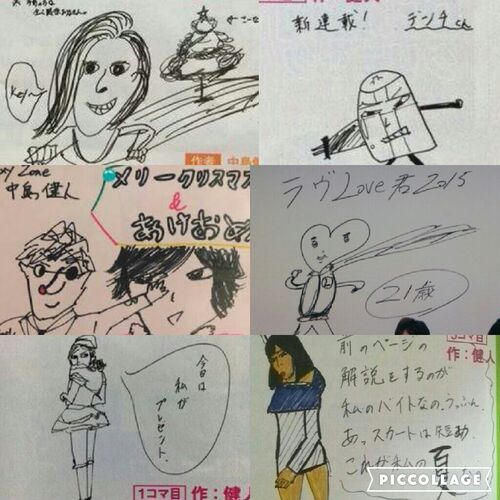 作者 中島健
新連載!
デンチくん
xy Zone
中島健人
メリークリスマス
&
あけおめ
ラヴLove君2015
21歳
今日は
私が
プレゼント。
1コマ目 作:健人
作:健人
前のページの
解説をするのが
私のバイトなの。うっふん
あっスカートは短め
これが私の夏
PICCOLLAGE